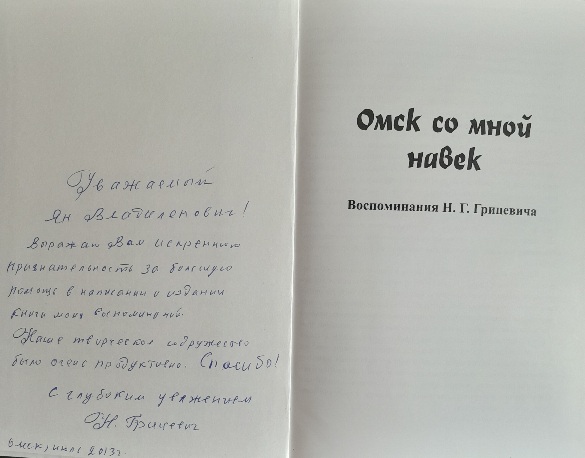 Уважаемый
Ян Владиленович!
Выражаю Вам искреннюю
признательность за большую
помощь в написании и издании
книги моих воспоминаний.
Наше творческое содружество
было очень продуктивно. Спасибо!
С глубоким уважением
Н. Грицевич
Омск, июль 2013 г.
Омск со мной
навек
Воспоминания Н. Г. Грицевича